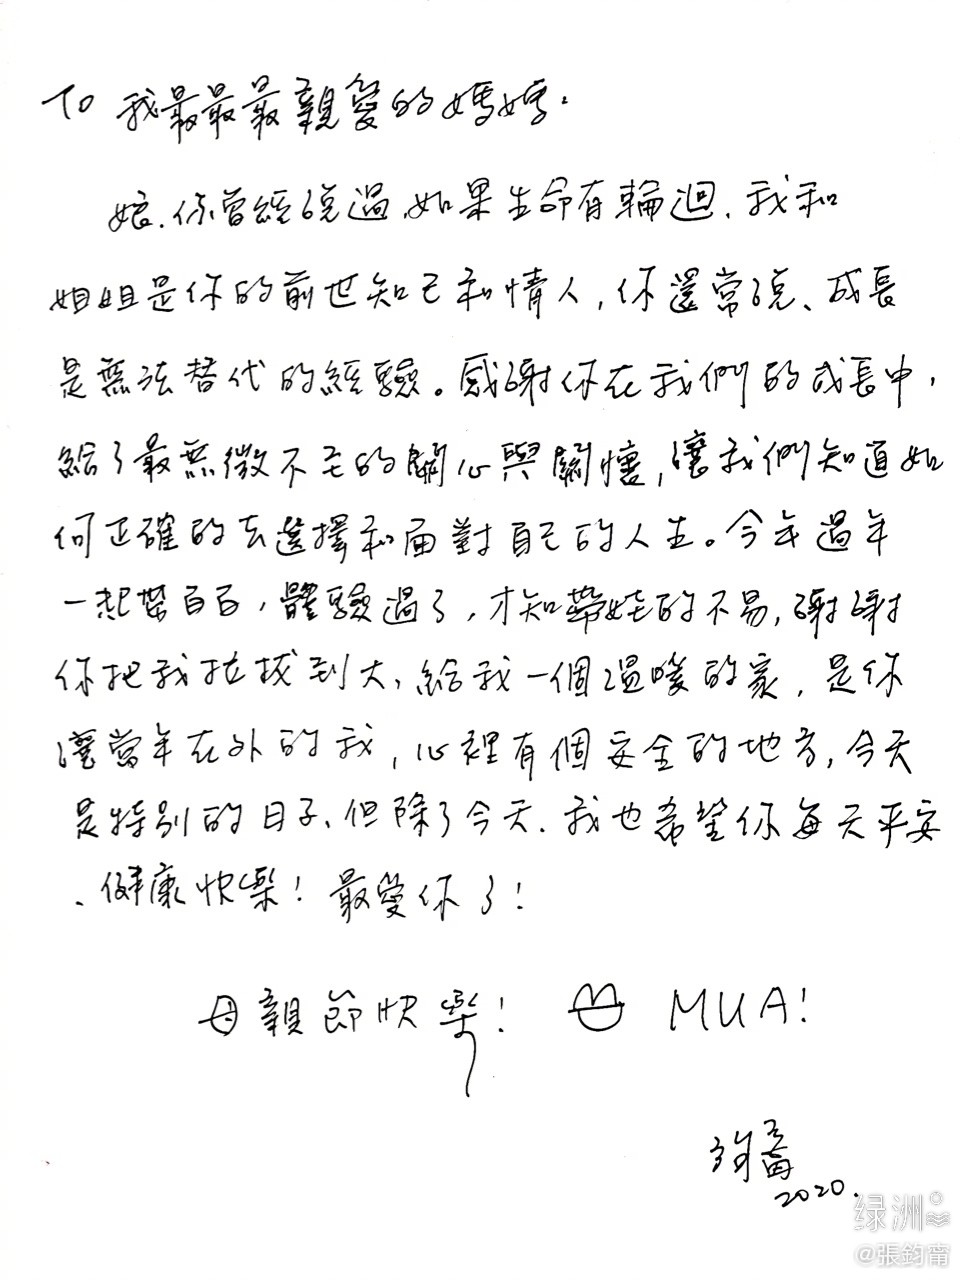 TO 我最最最親愛的媽媽.
娘.你曾經說過.如果生命有輪迴.我和
姐姐是你的前世知己和情人,你還常說、成長
是無法替代的經驗。感謝你在我們的成長中,
給了最無微不至的關心與關懷,讓我們知道如
何正確的去選擇和面對自己的人生。今年過年
一起帶百百,體驗過了,才知帶娃的不易,謝謝
你把我拉拔到大,給我一個溫暖的家,是你
讓當年在外的我,心裡有個安全的地方,今天
是特別的日子、但除了今天.我也希望你每天平安
、健康快樂!最愛你了!
母親節快樂! MUA!
2020.
绿洲
@張鈞甯